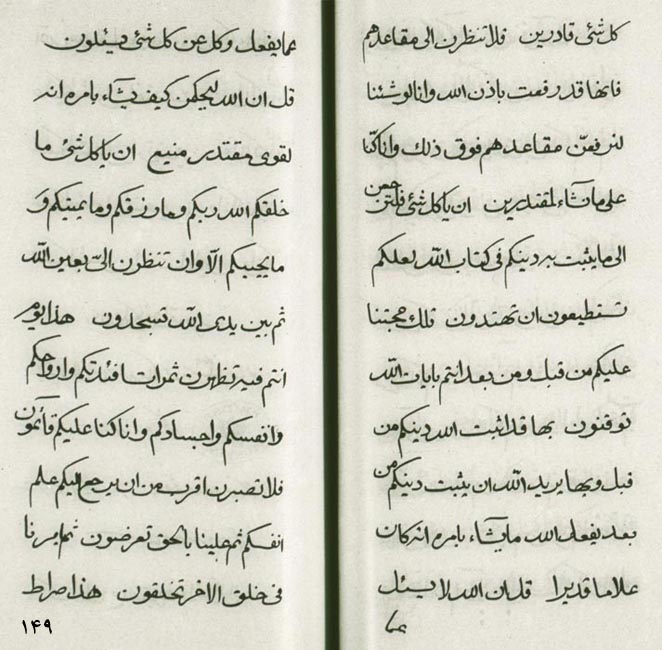 كل شئ قادرين فلا تنظرن الى مقاعدهم
فانها قد رفعت باذن الله وانا لو شئنا
لنرفعن مقاعدهم فوق ذلك وانا كنا
على ما نشاء لمقتدرين ان يا كل شئ فلتنر حمن
الى ما يثبت به دينكم فى كتاب الله لعلكم
تستطيعون ان تهتدون تلك حجتنا
عليكم من قبل ومن بعد انتم بايات الله
توقنون بها قد اثبت الله دينكم من
قبل وبها يريد الله ان يثبت دينكم من
بعد يفعل الله ما يشاء بامره انه كان
علاما قديرا قل ان الله لا يسئل
عما
عما يفعل وكل عن كل شئ يسئلون
قل ان الله ليحكمن كيف يشاء بامره انه
لقوى مقتدر منيع ان يا كل شئ ما
خلقكم الله ربكم وما رزقكم وما يميتكم و
ما يحييكم الا وان تنظرن الى بعين الله
ثم بين يدى الله تسجدون هذا يوم
انتم فيه تظهرن ثمرات افئدتكم وارواحكم
وانفسكم واجسادكم وانا كنا عليكم قائمون
فلا تصبرن اقرب من ان يرجع اليكم علم
انفسكم ثم علينا بالحق تعرضون ثم بامرنا
فى خلق الاخر تخلقون هذا صراط
١٤٩